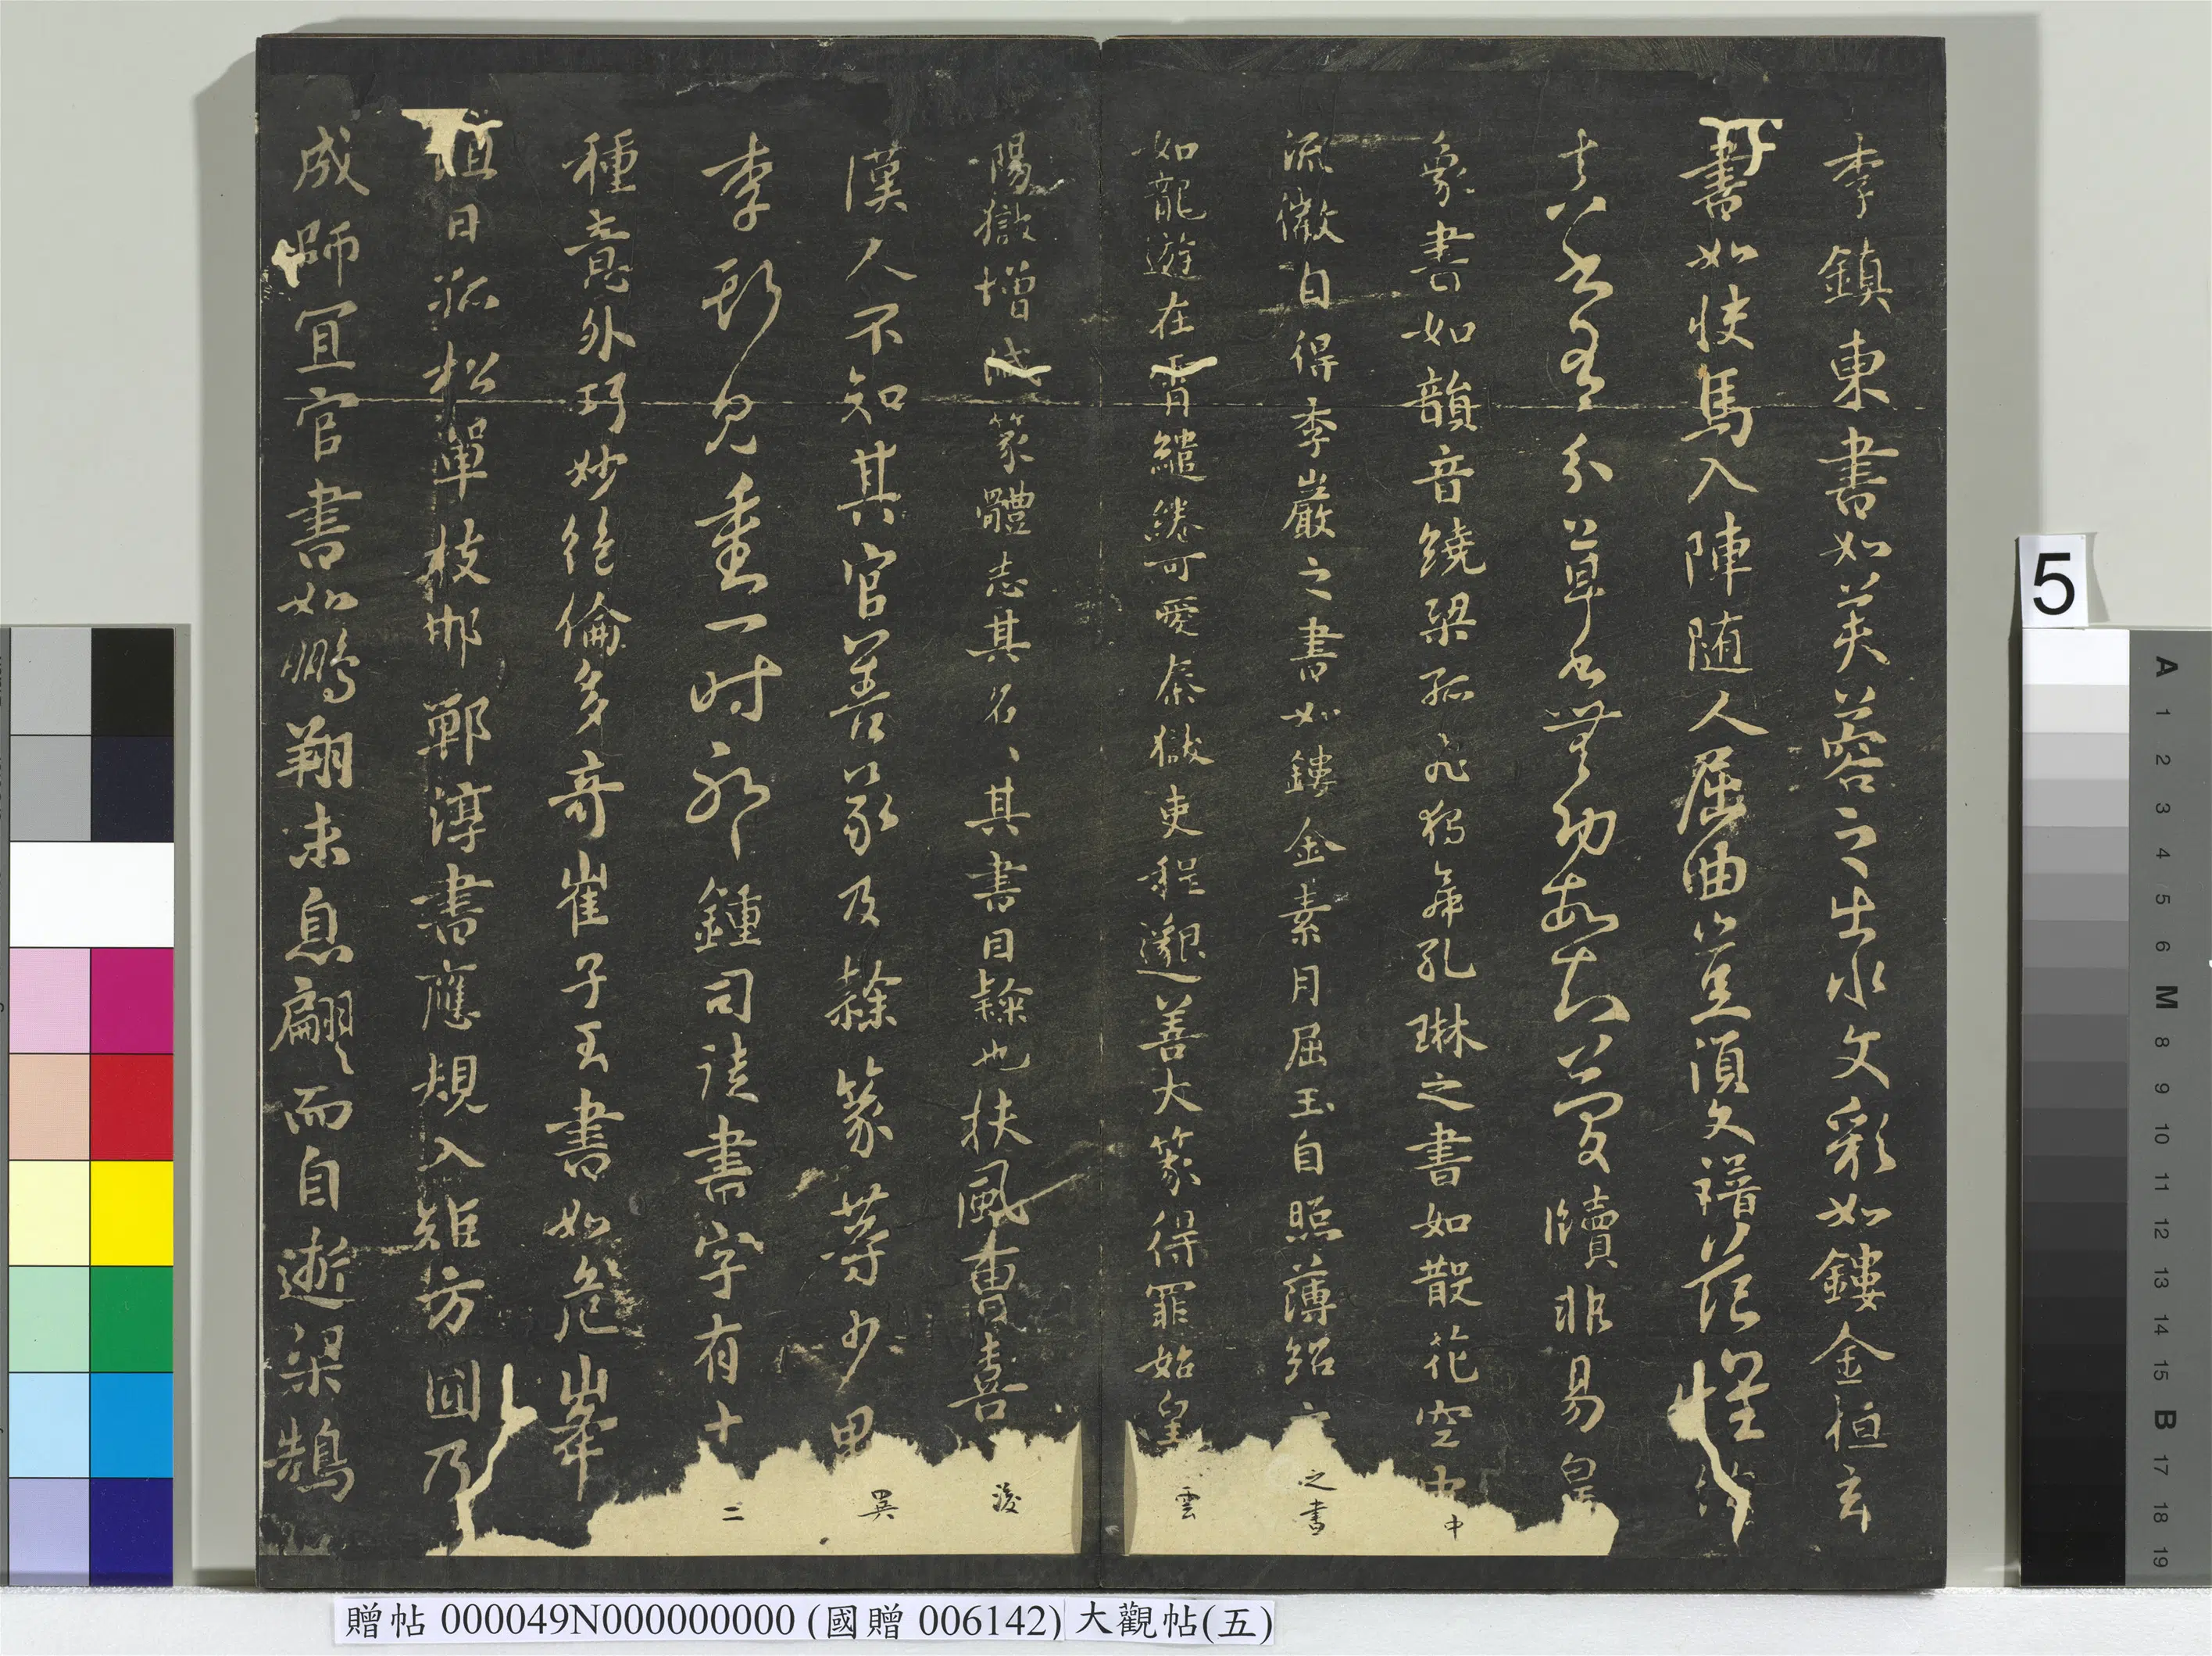 李鎮東書如芙蓉之出水文彩如鏤金桓玄
書如快馬入陣随人屈曲豈須文譜范懷約
真書有分草書無功故知簡牘非易皇
象書如韻音繞梁孤飛獨舞孔琳之書如散花空中
流徽自得李巖之書如鏤金素月屈玉自照薄紹之書
如龍遊在霄繾綣可愛秦獄吏程邈善大篆得罪始皇雲
陽獄增減篆體志其名、其書曰隸也扶風曹喜後
漢人不知其官善篆及隸篆等少異
李斯見重一时鍾司徒書字有十二
種意外巧妙絕倫多奇崔子玉書如危峯
阻日孤松單枝邯鄲淳書應規入矩方圓乃
成師宜官書如鵬翔未息翩々而自逝梁鵠
5
A 1 2 3 4 5 6 M 8 9 10 11 12 13 14 15 B 17 18 19
贈帖 000049N000000000 (國贈 006142) 大觀帖(五)